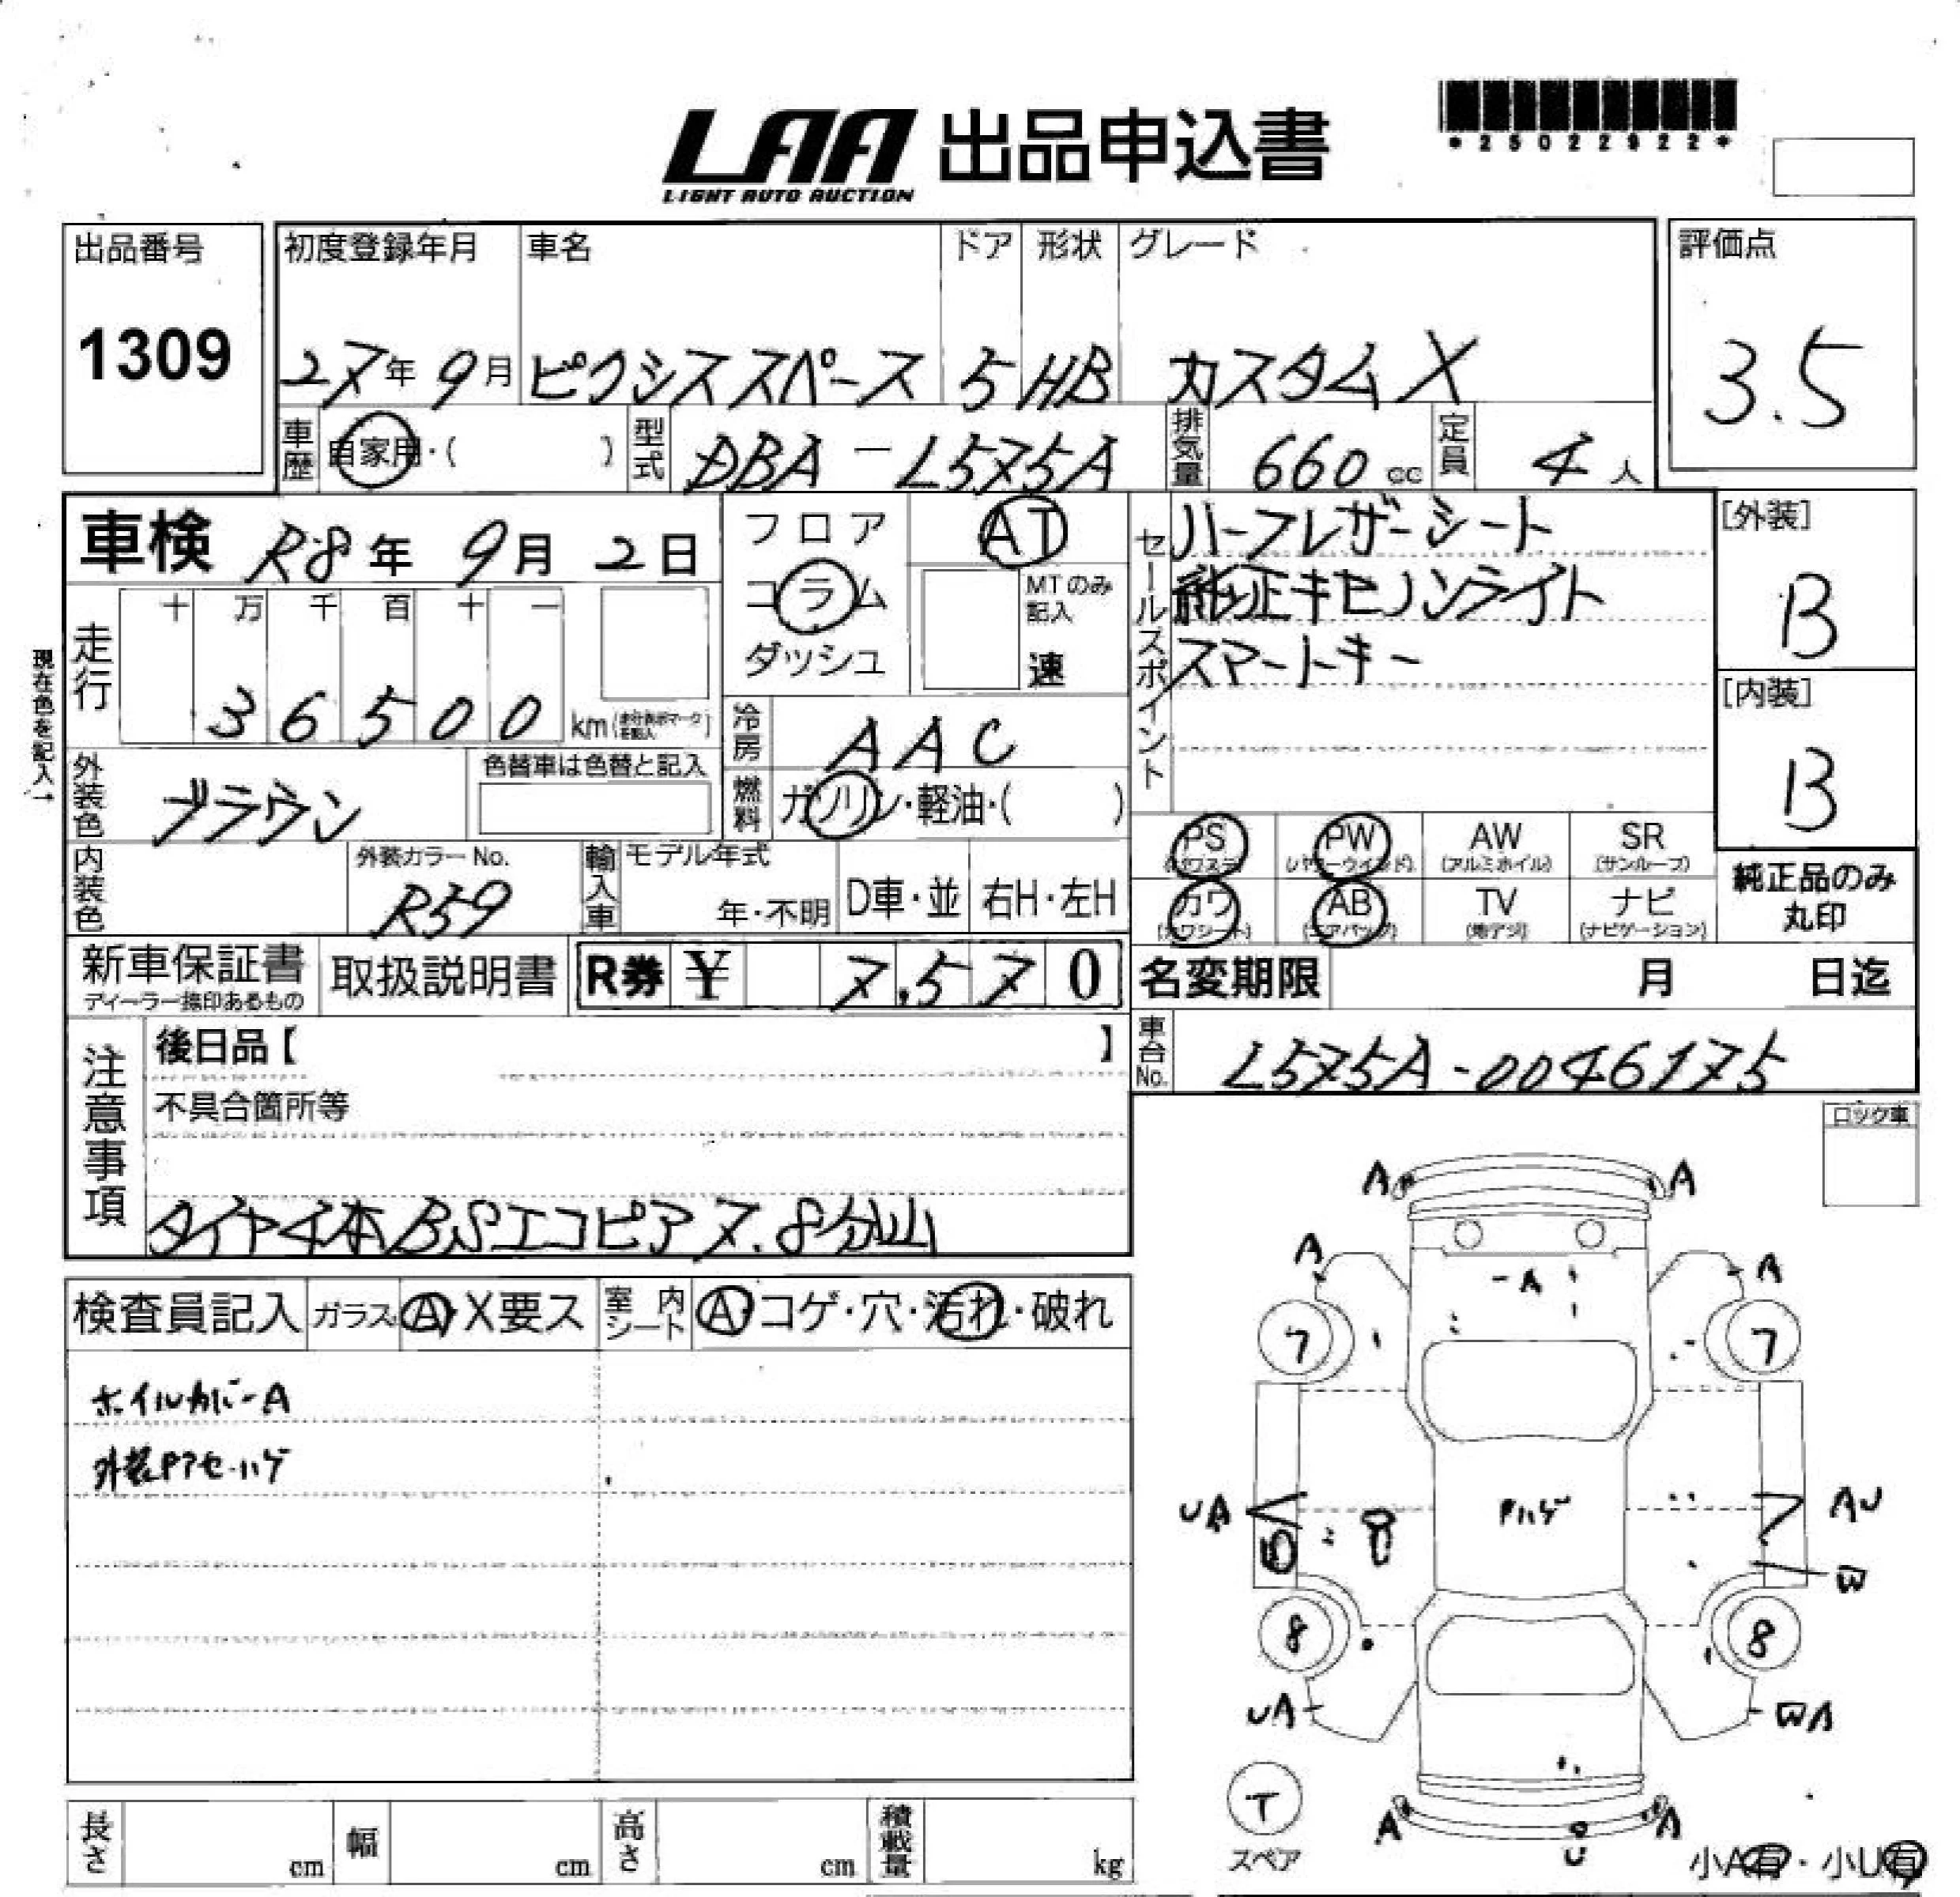 LAA 出品申込書
LIGHT AUTO AUCTION
*25022922*
出品番号
1309
初度登録年月
27年 9月
車名
ピクシススペース
ドア
5
形状
HB
グレード
カスタムX
評価点
3.5
車歴
自家用・( )
型式
DBA-L575A
排気量
660 cc
定員
4 人
車検 R8年 9月 2日
現在色を記入↑
走行
十 万 千 百 十 一
3 6 5 0 0 km
外装色
ブラウン
色替車は色替と記入
内装色
外装カラーNo.
R59
フロア
コラム
ダッシュ
AT
MTのみ記入
速
冷房
AAC
燃料
ガソリン・軽油・( )
輸入車
モデル年式
年・不明
D車・並
右H・左H
セールスポイント
ハーフレザーシート
純正キセノンライト
スマートキー
[外装]
B
[内装]
B
PS
(パワステ)
PW
(パワーウインド)
AW
(アルミホイル)
SR
(サンルーフ)
カワ
(カワシート)
AB
(エアバッグ)
TV
(地デジ)
ナビ
(ナビゲーション)
純正品のみ
丸印
新車保証書
ディーラー捺印あるもの
取扱説明書
R券 ¥ 7,570
名変期限 月 日迄
車台No.
L575A-0046175
注意事項
後日品【 】
不具合箇所等
タイヤ4本BSエコピア7.8分山
ロック車
検査員記入
ガラス A・X要ス
室内シート A・コゲ・穴・汚れ・破れ
ホイルカバーA
外装Pアセ・ハゲ
A A
A A
-A
7 7
UA
AU
Pハゲ
W
8 8
UA
WA
T
スペア
A A
U
小A有・小U有
長さ cm
幅 cm
高さ cm
積載量 kg